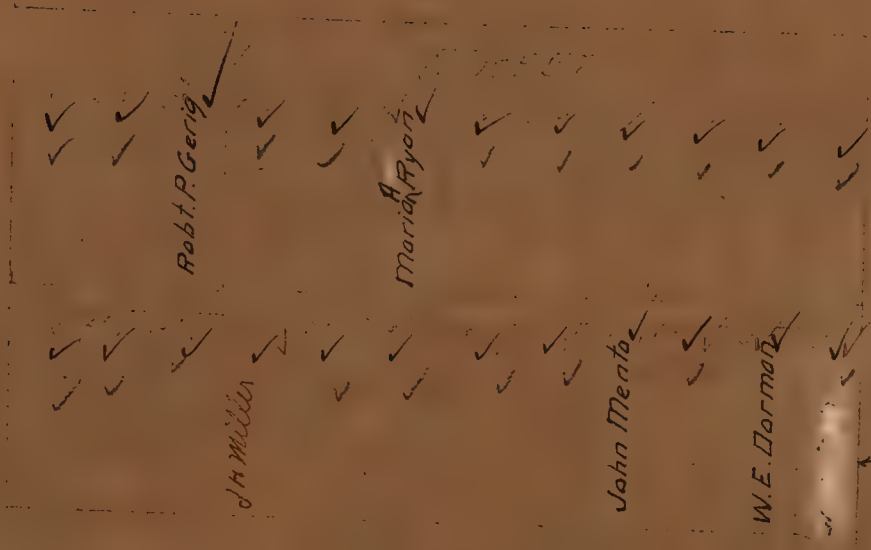 Robt. P. Gerig
Marian A Ryan
J H Miller
John Mento
W. E. Dorman